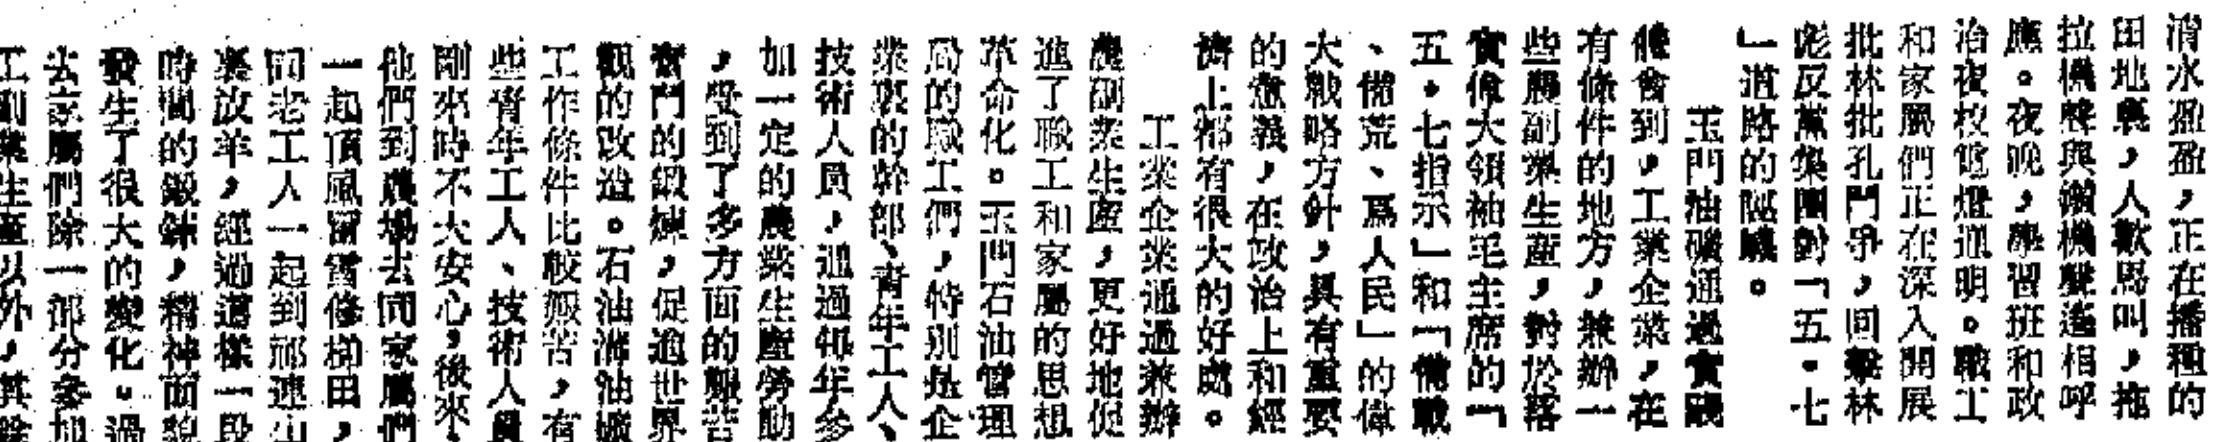 消水盈盈，正在播種的
田地裏，人歡馬叫，拖
拉機聲與鑽機聲遙相呼
應。夜晚，學習班和政
治夜校電燈通明。職工
和家屬們正在深入開展
批林批孔鬥爭，回擊林
彪反黨集團對「五·七
」道路的誣衊。
玉門油礦通過實踐
體會到，工業企業，在
有條件的地方，兼辦一
些農副業生產，對於落
實偉大領袖毛主席的「
五·七指示」和「備戰
、備荒、爲人民」的偉
大戰略方針，具有重要
的意義，在政治上和經
濟上都有很大的好處。
工業企業通過兼辦
農副業生產，更好地促
進了職工和家屬的思想
革命化。玉門石油管理
局的職工們，特別是企
業裏的幹部、青年工人、
技術人員，通過每年多
加一定的農業生產勞動
，受到了多方面的艱苦
奮鬥的鍛煉，促進世界
觀的改造。石油溝油礦
工作條件比較艱苦，有
些青年工人、技術人員
剛來時不大安心，後來，
他們到農場去同家屬們
一起頂風冒雪修梯田，
同老工人一起到祁連山
裏放羊，經過這樣一段
時間的鍛鍊，精神面貌
發生了很大的變化。過
去家屬們除一部分參加
工副業生產以外，其餘